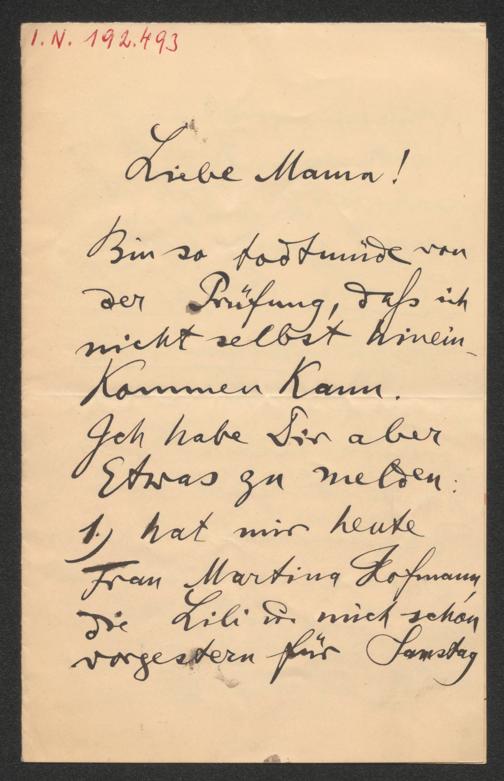 I.N. 192.493
Liebe Mama!
Bin so todtmüde von
der Prüfung, daß ich
nicht selbst hinein-
kommen kann.
Ich habe Dir aber
Etwas zu melden:
1.) hat mir heute
Frau Martina Hofmann,
die Lili u. mich schon
vorgestern für Samstag